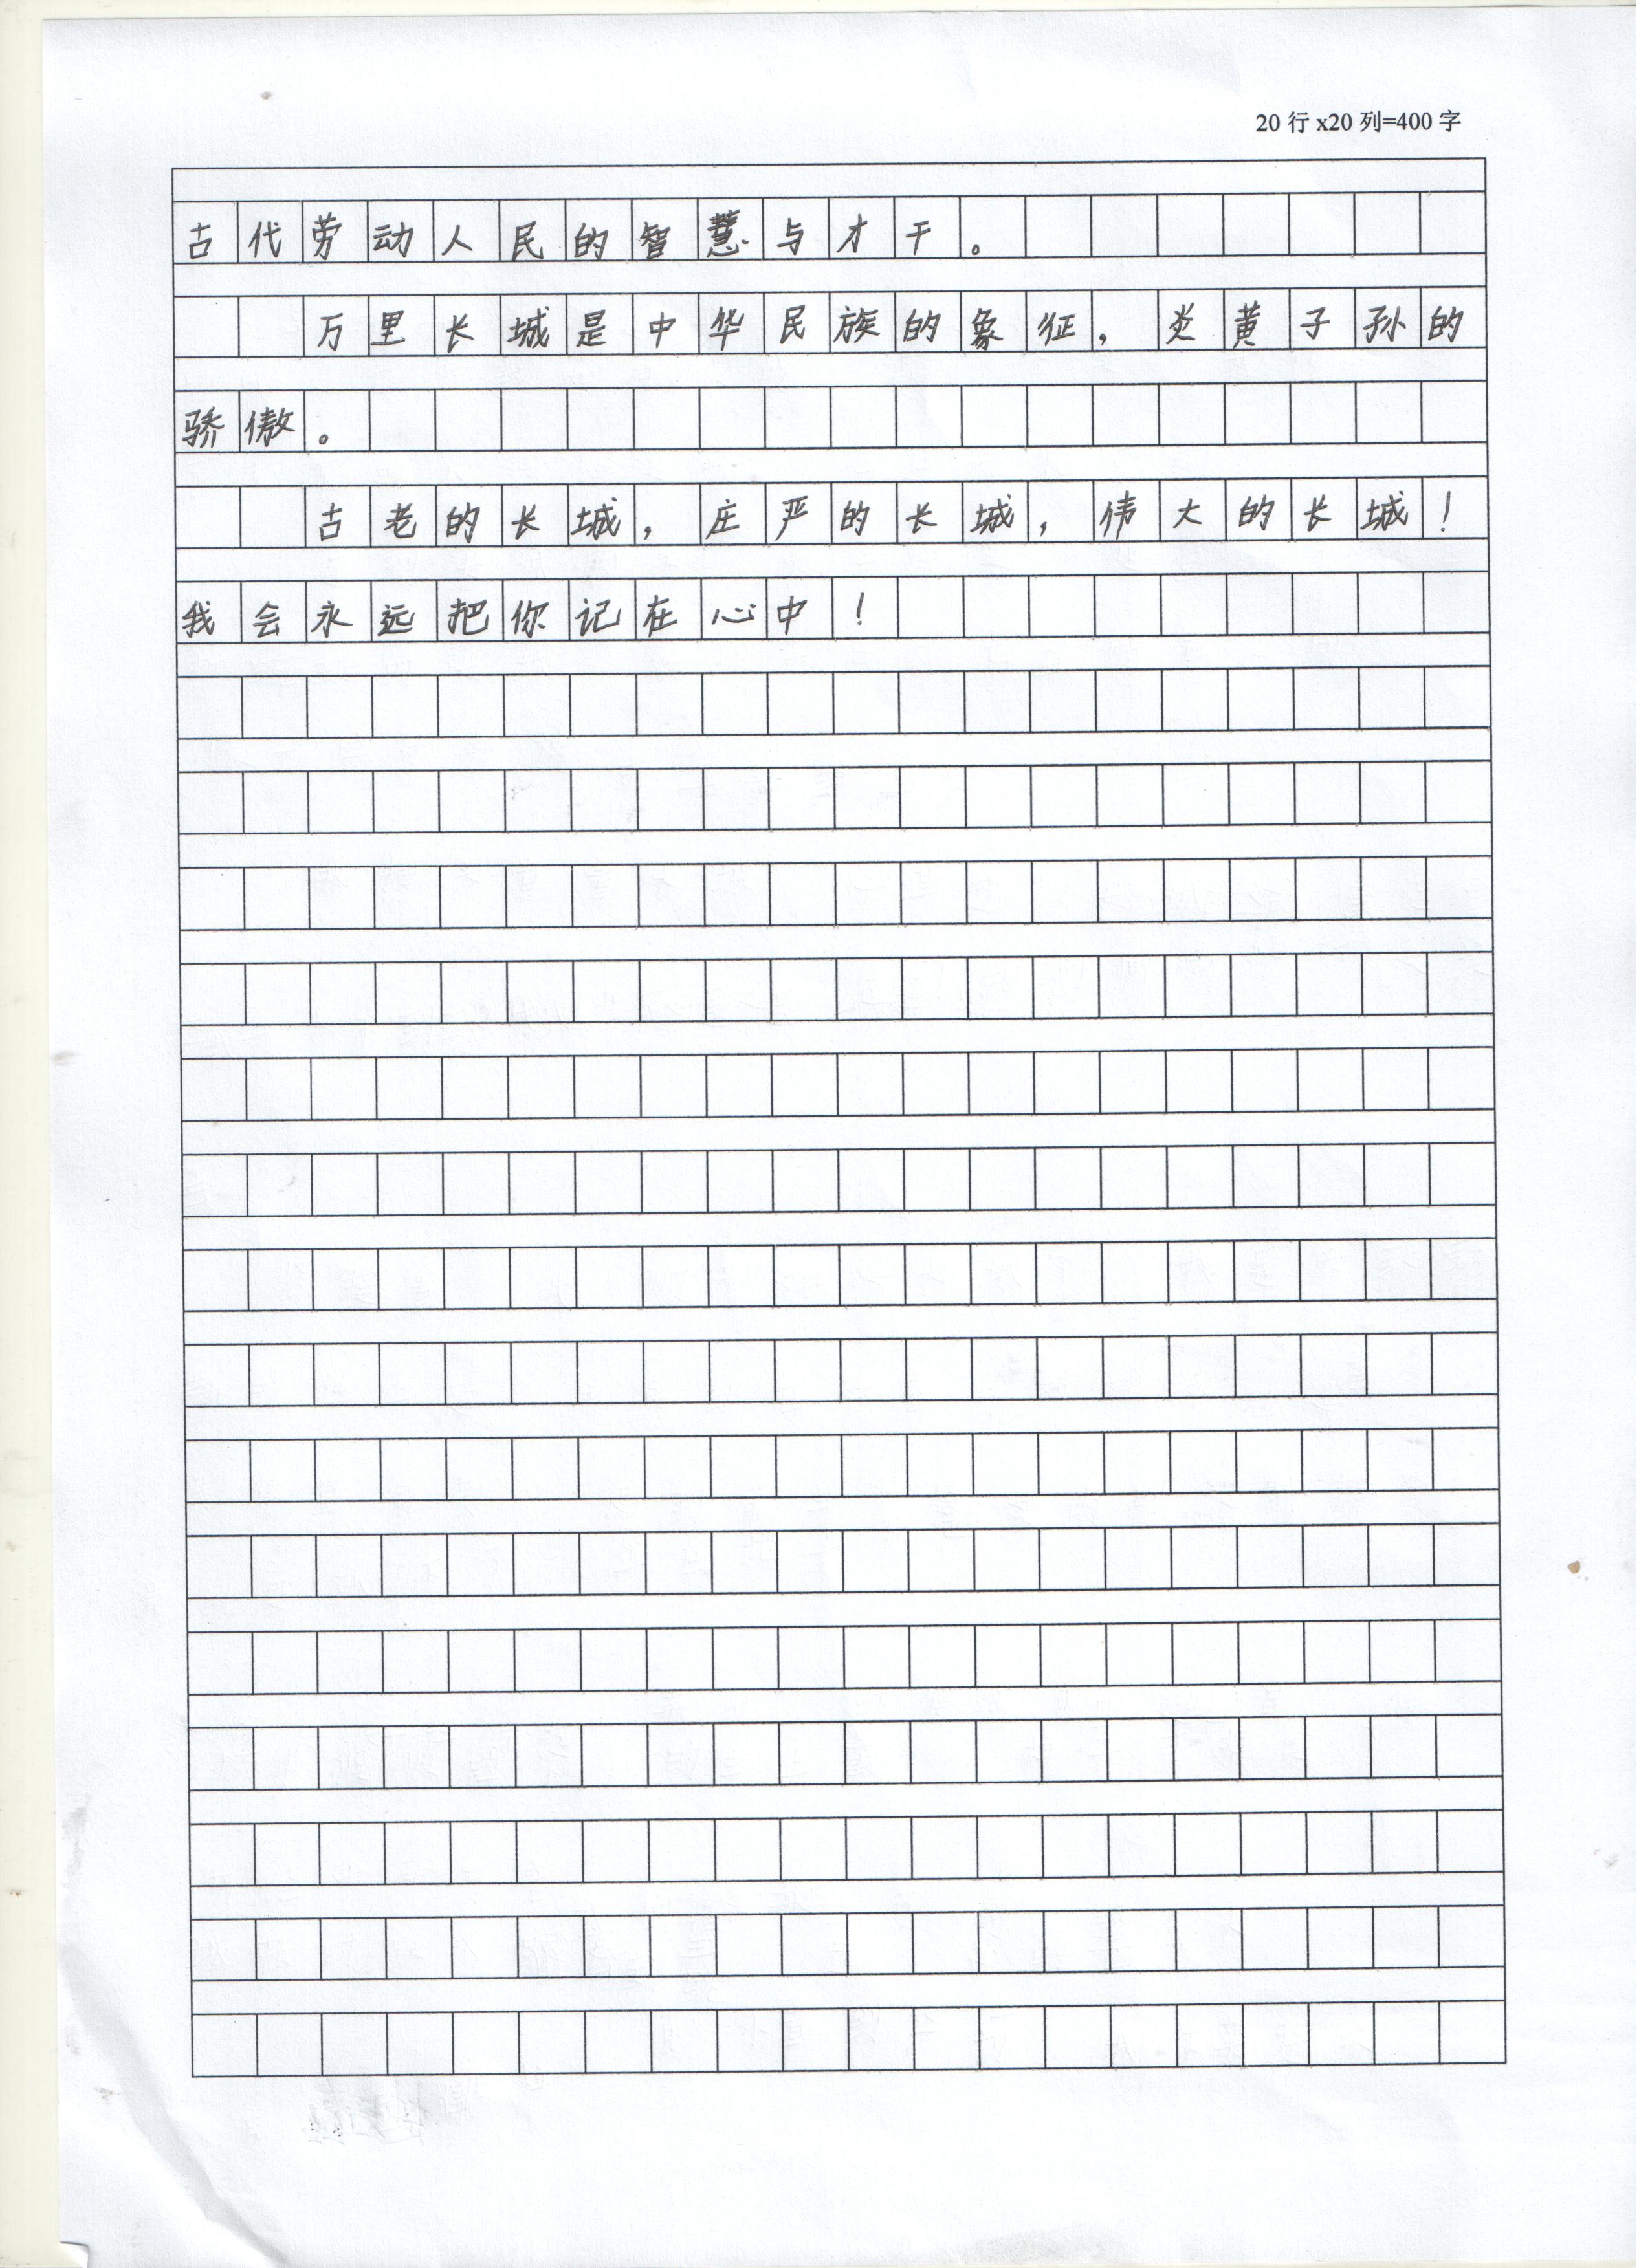 20 行 x20 列=400 字
古代劳动人民的智慧与才干。
万里长城是中华民族的象征，炎黄子孙的
骄傲。
古老的长城，庄严的长城，伟大的长城！
我会永远把你记在心中！